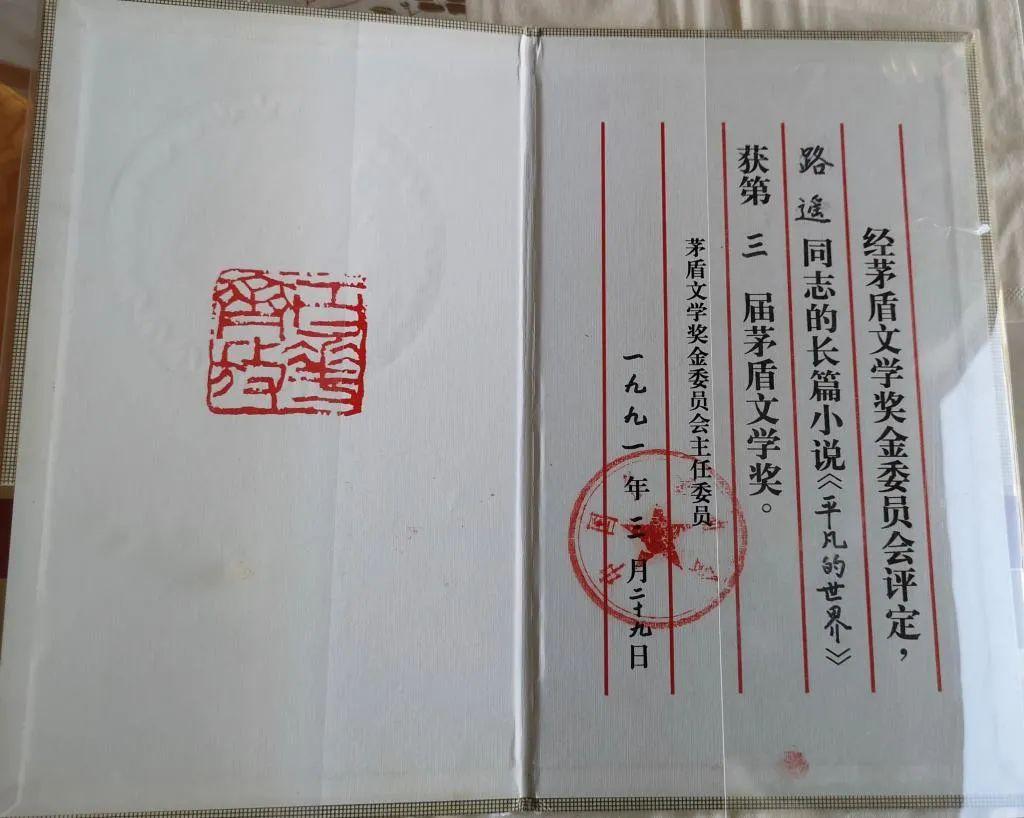 经茅盾文学奖金委员会评定，
路遥同志的长篇小说《平凡的世界》
获第三届茅盾文学奖。
茅盾文学奖金委员会主任委员
一九九一年三月二十九日